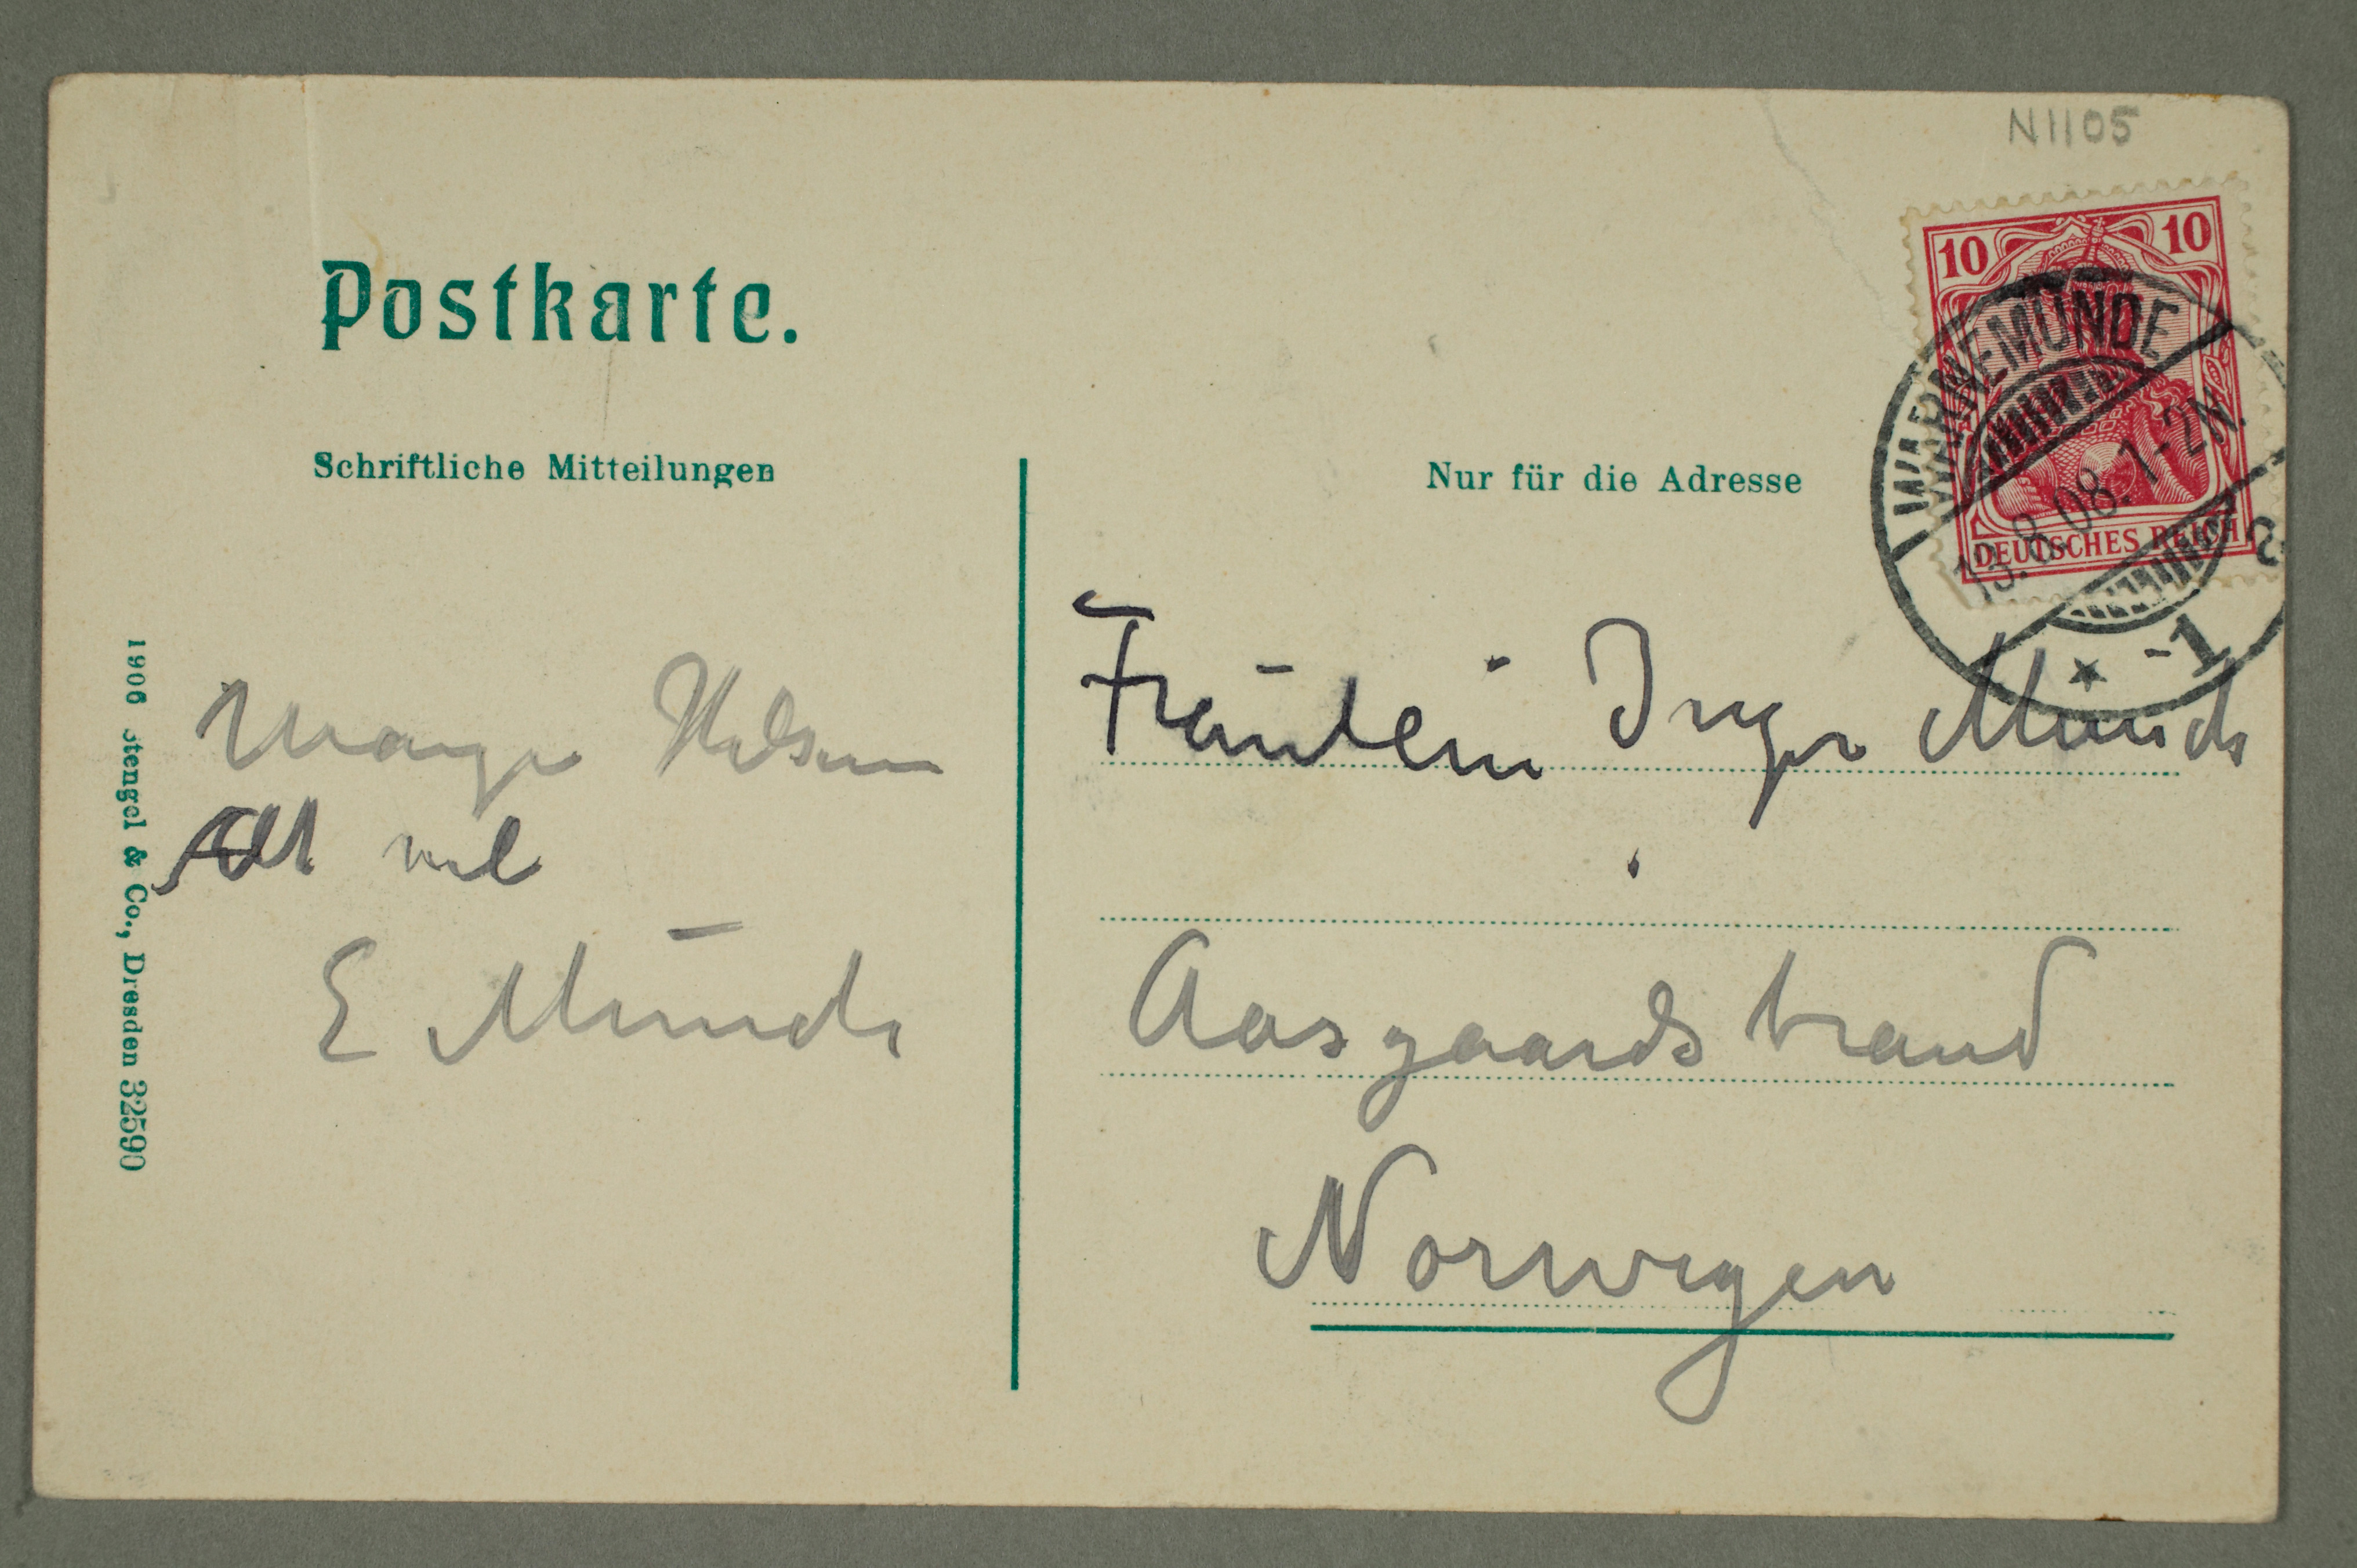 N1105
Postkarte.
10 10
WARNEMÜNDE
8.08.1-2N.
DEUTSCHES REICH
* -1
Schriftliche Mitteilungen
Nur für die Adresse
Mange Hilsener
Alt vel
E Munch
Fräulein Inger Munch
Aasgaardstrand
Norwegen
1906 Stengel & Co., Dresden 32590